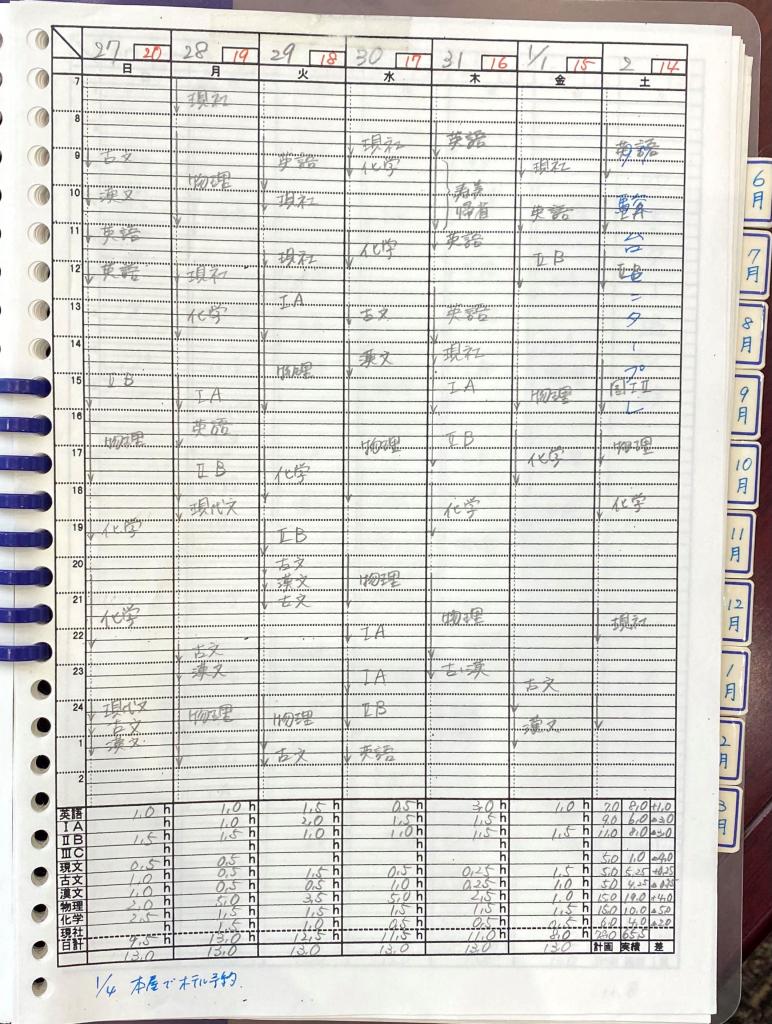 27 20 28 19 29 18 30 17 31 16 1/1 15 2 14
日 月 火 水 木 金 土
7
現社
8
現社 英語 英語
9
古文 英語 化学 現社
物理
10
漢文 現社 帰省 英語
11
英語 現社 化学 英語 ⅡB 台
12
英語 現社 セ
ⅠA ン
13
化学 古文 英語 タ
14
漢文 現社 ー
物理 プ
15
ⅡB ⅠA ⅠA 物理 レ
16
英語
17
物理 物理 ⅡB 物理
ⅡB 化学 化学
18
現代文 化学 化学
19
化学 ⅡB
20
古文
漢文 物理
21
古文
化学 物理 現社
22
ⅠA
古文
23
漢文 ⅠA 古・漢
古文
24
現代文 物理 物理 ⅡB
古文 漢文
1
漢文 古文 英語
2
英語 1.0 h 1.0 h 1.5 h 0.5 h 3.0 h 1.0 h 7.0 8.0 +1.0
ⅠA h 1.0 h 2.0 h 1.5 h 1.5 h h 9.0 6.0 ▲3.0
ⅡB 1.5 h 1.5 h 1.0 h 1.0 h 1.5 h 1.5 h 11.0 8.0 ▲3.0
ⅢC h h h h h h
現文 0.5 h 0.5 h h h h h 5.0 1.0 ▲4.0
古文 1.0 h 0.5 h 1.5 h 0.5 h 0.25 h 1.5 h 5.0 5.25 +0.25
漢文 1.0 h 0.5 h 0.5 h 1.0 h 0.25 h 1.0 h 5.0 4.25 ▲0.75
物理 2.0 h 5.0 h 3.5 h 5.0 h 2.5 h 1.0 h 15.0 19.0 +4.0
化学 2.5 h 1.5 h 1.5 h 1.5 h 1.5 h 1.5 h 15.0 10.0 ▲5.0
現社 h 1.5 h 1.0 h 0.5 h 0.5 h 0.5 h 6.0 4.0 ▲2.0
日計 9.5 h 13.0 h 12.5 h 11.5 h 11.0 h 8.0 h 65.5
13.0 13.0 13.0 13.0 13.0 計画 実績 差
1/4 本屋でホテル予約
6月
7月
8月
9月
10月
11月
12月
1月
2月
3月